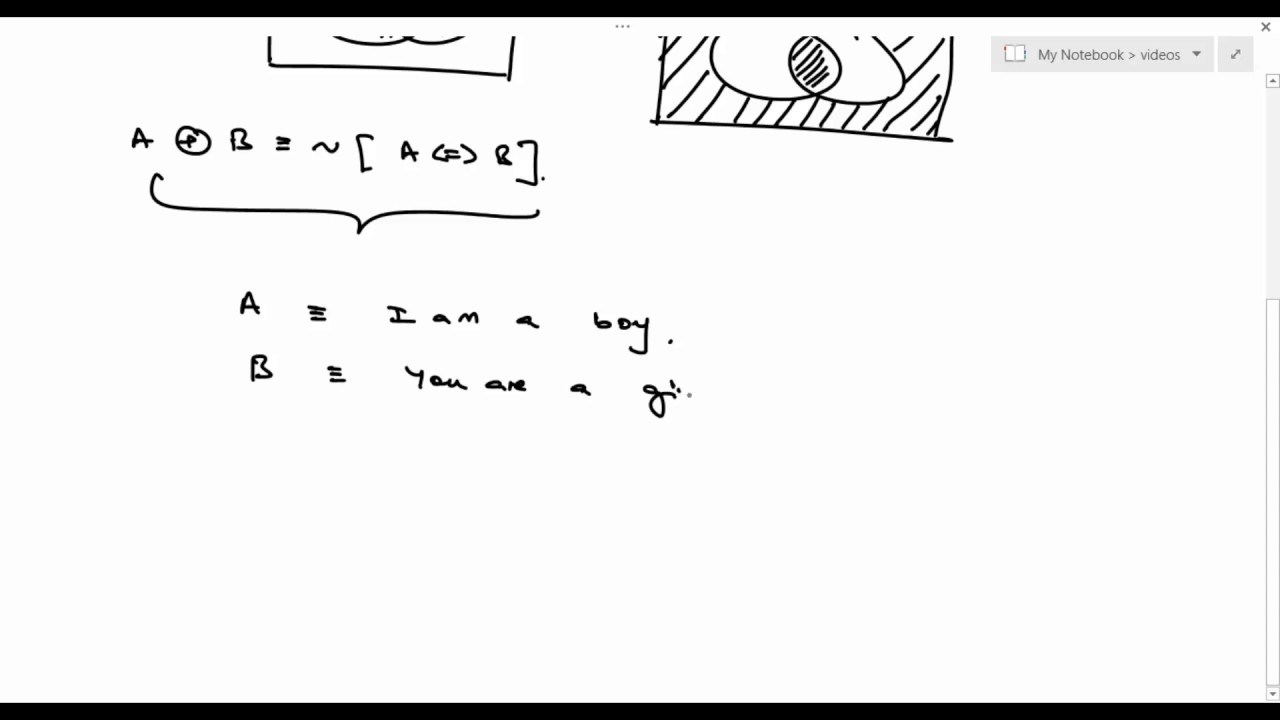 My Notebook > videos
A ⊕ B ≡ ~ [ A <=> B ].
A ≡ I am a boy.
B ≡ You are a gi